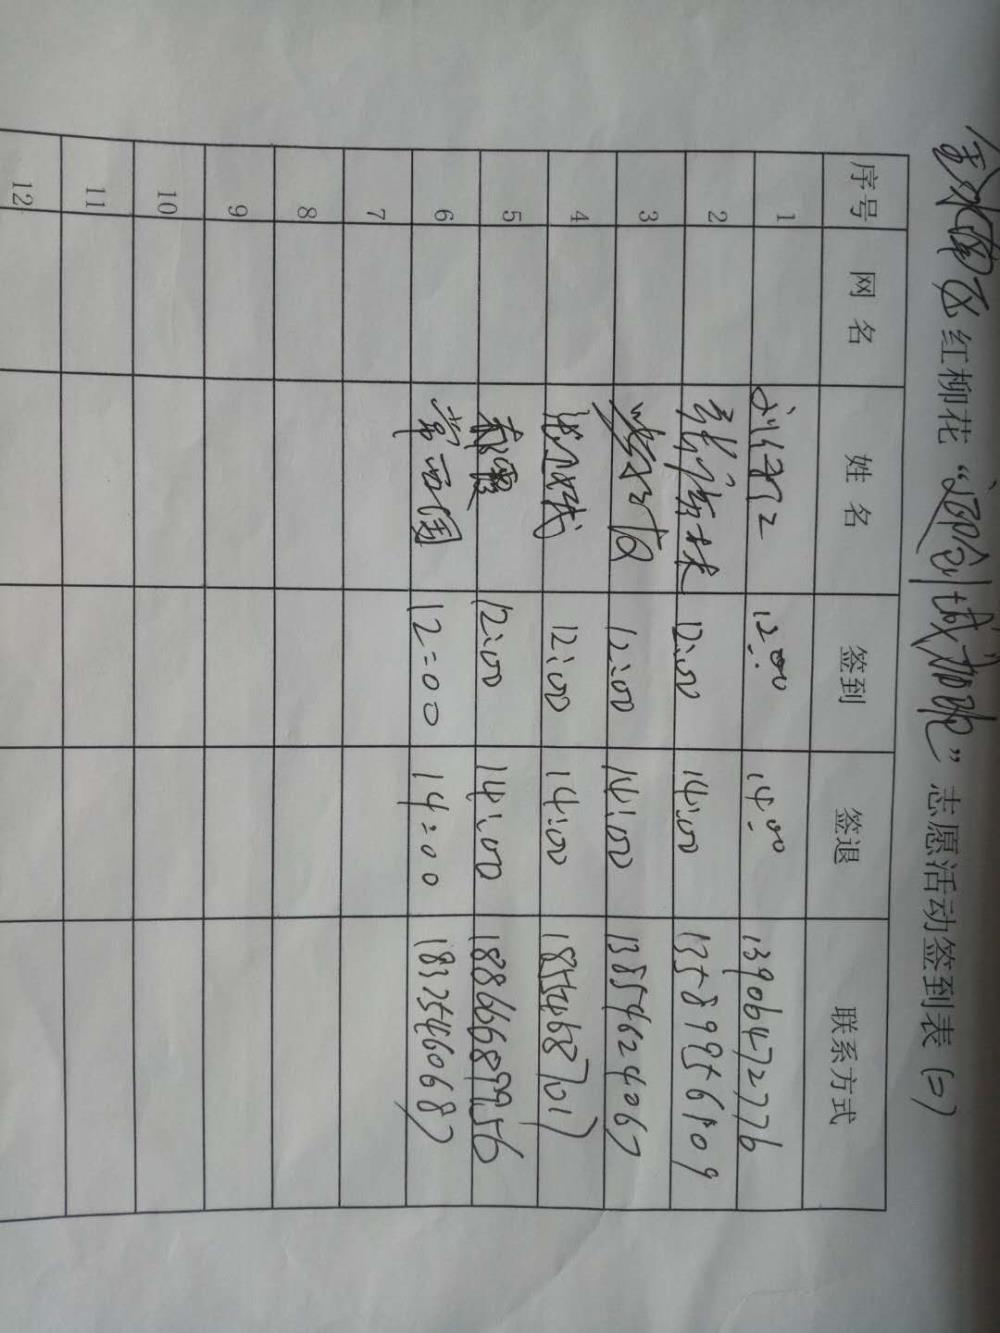 红柳花“迎创城加吧”志愿活动签到表（二）
序号 网名 姓名 签到 签退 联系方式
1 12:00 14:00 13906472776
2 12:00 14:00 13589956109
3 12:00 14:00 13854624067
4 12:00 14:00 18554687017
5 郝霞 12:00 14:00 18866689956
6 常西国 12:00 14:00 18325466687
7
8
9
10
11
12